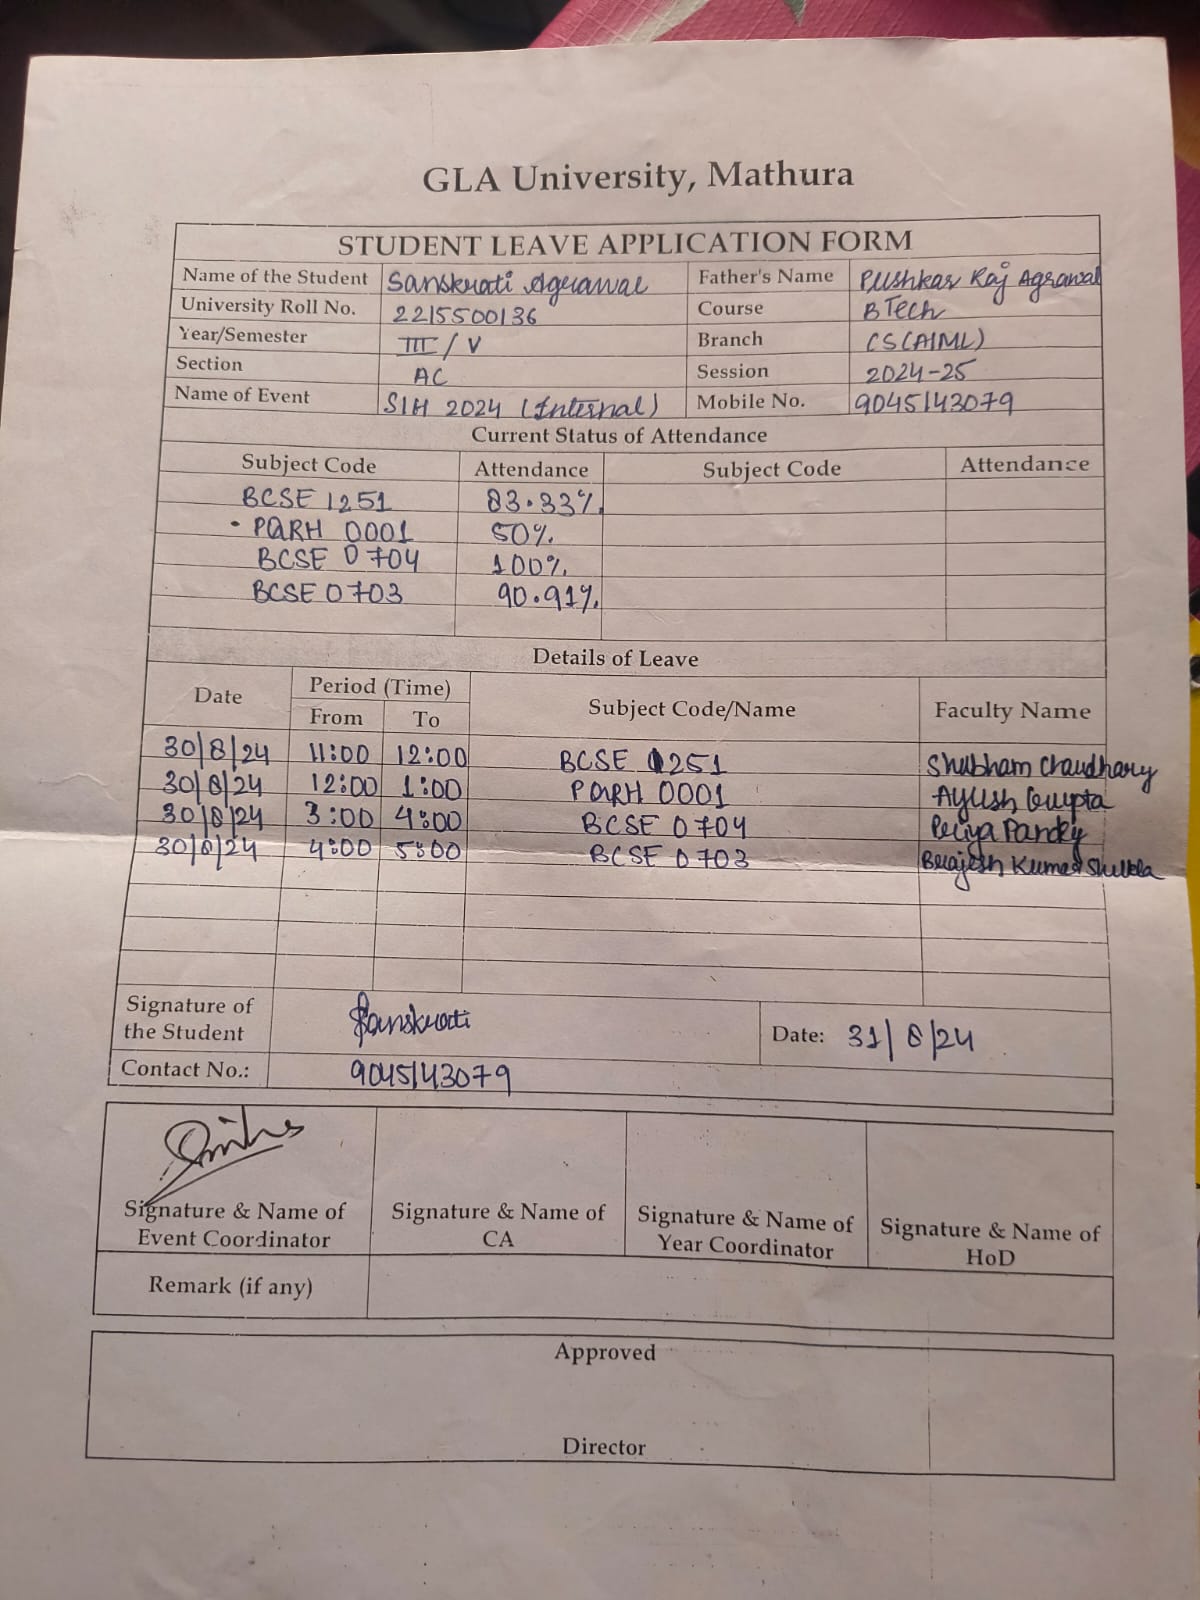 GLA University, Mathura
STUDENT LEAVE APPLICATION FORM
Name of the Student Sanskrati Agrawal Father's Name Pushkar Raj Agrawal
University Roll No. 2215500136 Course BTech
Year/Semester III/V Branch CS(AIML)
Section AC Session 2024-25
Name of Event SIH 2024 (Internal) Mobile No. 9045143079
Current Status of Attendance
Subject Code Attendance Subject Code Attendance
BCSE 1251 83.33%
PQRH 0001 50%
BCSE 0704 100%
BCSE 0703 90.91%
Details of Leave
Date Period (Time) Subject Code/Name Faculty Name
From To
30/8/24 11:00 12:00 BCSE 1251 Shubham Chaudhary
30/8/24 12:00 1:00 PQRH 0001 Ayush Gupta
30/8/24 3:00 4:00 BCSE 0704 Priya Pandey
30/8/24 4:00 5:00 BCSE 0703 Brajesh Kumar Shukla
Signature of the Student Sanskrati Date: 31/8/24
Contact No.: 9045143079
Signature & Name of Event Coordinator
Signature & Name of CA
Signature & Name of Year Coordinator
Signature & Name of HoD
Remark (if any)
Approved
Director